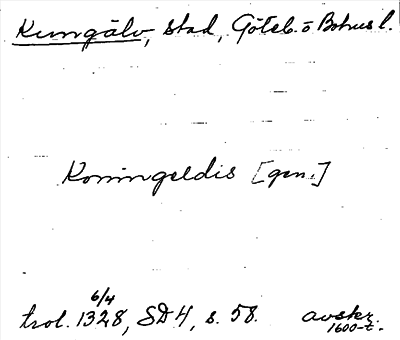 Kungälv, stad, Göteb. o Bohus l.
Koningeldis [gen.]
trol. 6/4 1328, SD4, s. 58. avskr. 1600-t.